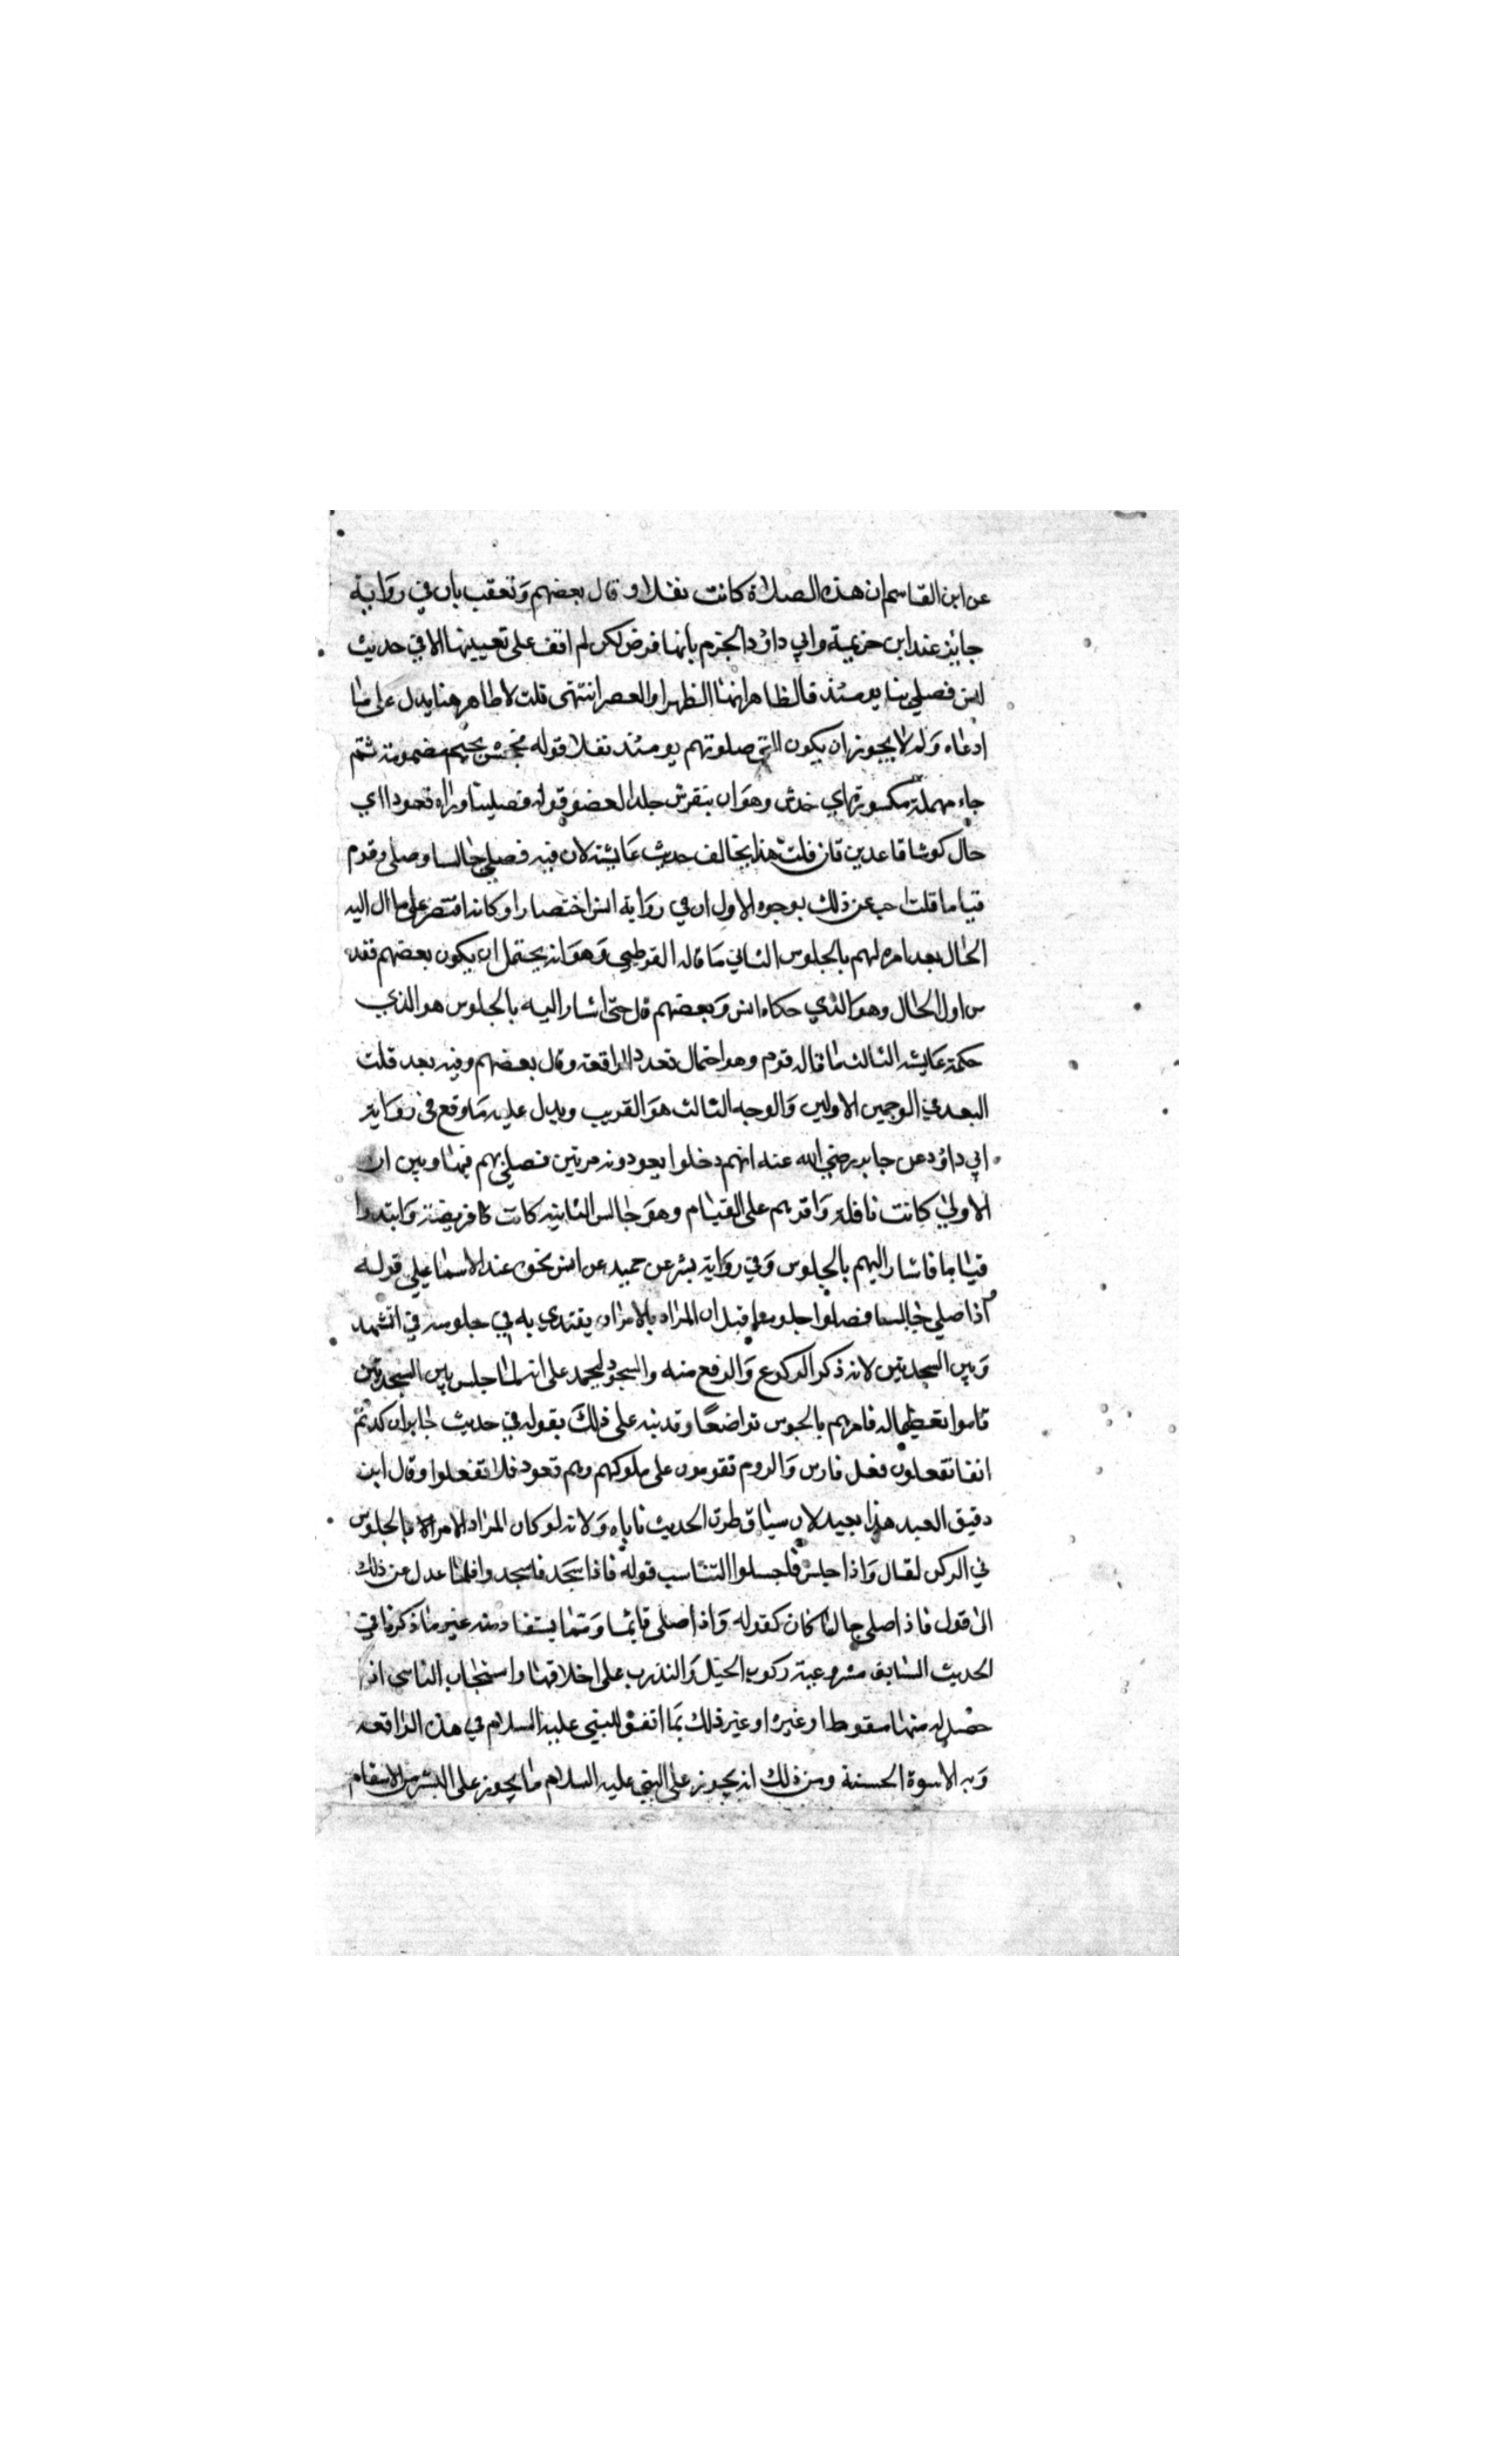 عن ابن القاسم ان هذه الصلاة كانت نفلا وقال بعضهم وتعقب بان في رواية
جابر عند ابن خزيمة وابي داؤد الجزم بانها فرض لكن لم اقف على تعيينها الا في حديث
انس فصلي بنا يومئذ فالظاهر انها الظهر او العصر انتهى قلت لا ظاهر هنا يدل على ما
ادعاه وله لا يجوز ان يكون التي صلوتهم يومئذ نفلا قوله فجحش بجيم مضمومة ثم
حاء مهملة مكسورة اي خدش وهو ان يتقرش جلد العضو قوله فصلينا وراه قعودا اي
حال كوننا قاعدين فان قلت هذا يخالف حديث عايشة لان فيه فصلي جالسا وصلى وقوم
قياما قلت اجيب عن ذلك بوجوه الاول ان في رواية انس اختصارا وكانه اقتصر على ما ال اليه
الحال بعد امره لهم بالجلوس الثاني ما قاله القرطبي وهو انه يحتمل ان يكون بعضهم قعد
من اول الحال وهو الذي حكاه انس وبعضهم قام حتى اشار اليه بالجلوس هو الذي
حكته عايشه الثالث ما قاله قوم وهو احتمال تعدد الواقعة وقال بعضهم وفيه بعد قلت
البعد في الوجهين الاولين والوجه الثالث هو القريب ويدل عليه ما وقع في رواية
ابي داؤد عن جابر رضي الله عنه انهم دخلوا يعودونه مرتين فصلي بهم فيهما وبين ان
الاولي كانت نافلة واقرهم على القيام وهو جالس الثانية كانت فريضة وابتدوا
قياما فاشار اليهم بالجلوس وفي رواية بشر عن حميد عن انس نحوه عند الاسماعيلي قوله
اذا صلي جالسا فصلوا جلوسا قيل ان المراد بالامر ان يقتدي به في جلوسه في التشهد
وبين السجدتين لانه ذكر الركوع والرفع منه والسجود فيحمد على انه لما جلس بين السجدتين
قاموا تعظيما له فامرهم بالجوس تواضعا وقد نبه على ذلك بقوله في حديث جابر ان كدتم
انفا تفعلون فعل فارس والروم تقومون على ملوكهم وهم قعود فلا تفعلوا وقال ابن
دقيق العبد هذا بعيد لان سياق طرق الحديث تاباه ولانه لو كان المراد الامر بالجلوس
في الركن لقال واذا جلس فاجسلوا التناسب قوله فاذا سجد فاسجدوا فلما عدل عن ذلك
الى قول فاذا صلي جالسا كان كقوله واذا صلى قايما ومما يستفاد منه غير ما ذكرنا في
الحديث السابق مشروعية ركوب الخيل والتدرب على اخلاقها واستحباب التاسي اذا
حصل له منها سقوط او غيره او غير ذلك بما اتفق للنبي عليه السلام في هذه الواقعه
وبه الاسوة الحسنة ومن ذلك انه يجوز على النبي عليه السلام ما يجوز على البشر من الاسقام